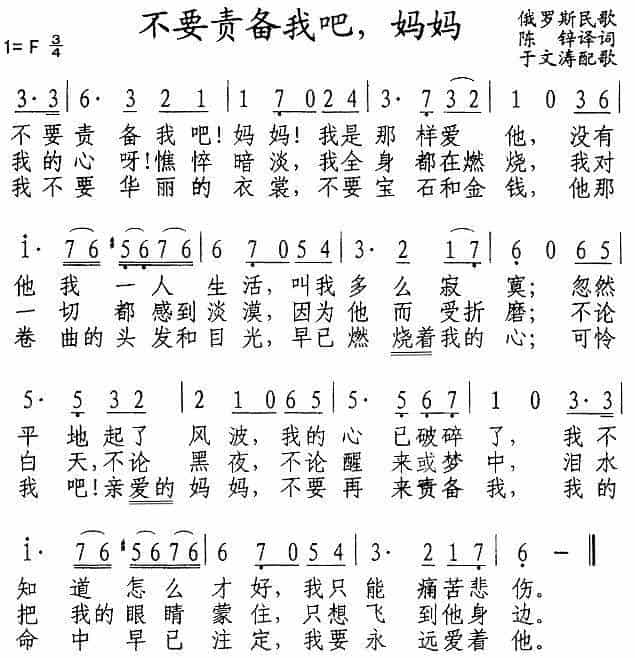 不要责备我吧，妈妈
俄罗斯民歌
陈 锌译词
于文涛配歌
1= F 3/4
3· 3 | 6· 3 2 1 | 1 7 0 2 4 | 3· 7 3 2 | 1 0 3 6 |
不 要 责 备 我 吧! 妈 妈! 我 是 那 样 爱 他, 没 有
我 的 心 呀! 憔 悴 暗 淡, 我 全 身 都 在 燃 烧, 我 对
我 不 要 华 丽 的 衣 裳, 不 要 宝 石 和 金 钱, 他 那
i· 7 6 #5 6 7 6 | 6 7 0 5 4 | 3· 2 1 7 | 6 0 6 5 |
他 我 一 人 生 活, 叫 我 多 么 寂 寞; 忽 然
一 切 都 感 到 淡 漠, 因 为 他 而 受 折 磨; 不 论
卷 曲 的 头 发 和 目 光, 早 已 燃 烧 着 我 的 心; 可 怜
5· 5 3 2 | 2 1 0 6 5 | 5· 5 6 7 | 1 0 3· 3 |
平 地 起 了 风 波, 我 的 心 已 破 碎 了, 我 不
白 天, 不 论 黑 夜, 不 论 醒 来 或 梦 中, 泪 水
我 吧! 亲 爱 的 妈 妈, 不 要 再 来 责 备 我, 我 的
i· 7 6 #5 6 7 6 | 6 7 0 5 4 | 3· 2 1 7 | 6 — ‖
知 道 怎 么 才 好, 我 只 能 痛 苦 悲 伤。
把 我 的 眼 睛 蒙 住, 只 想 飞 到 他 身 边。
命 中 早 已 注 定, 我 要 永 远 爱 着 他。